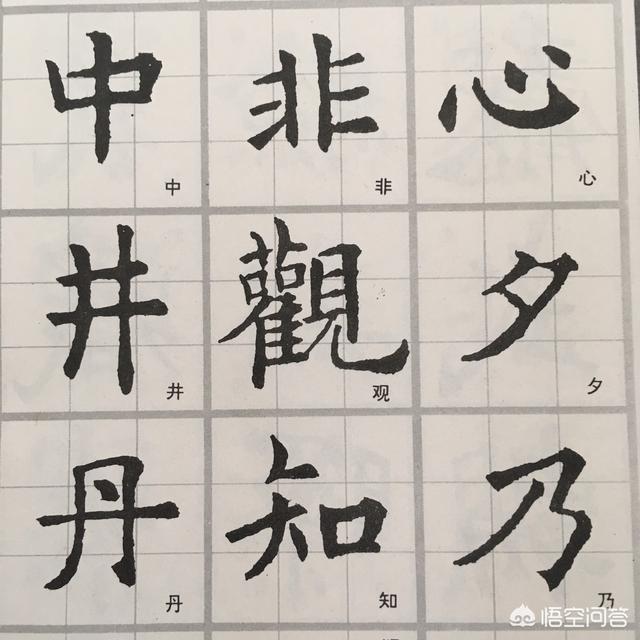 中 非 心
中 非 心
井 觀 夕
井 观 夕
丹 知 乃
丹 知 乃
悟空问答